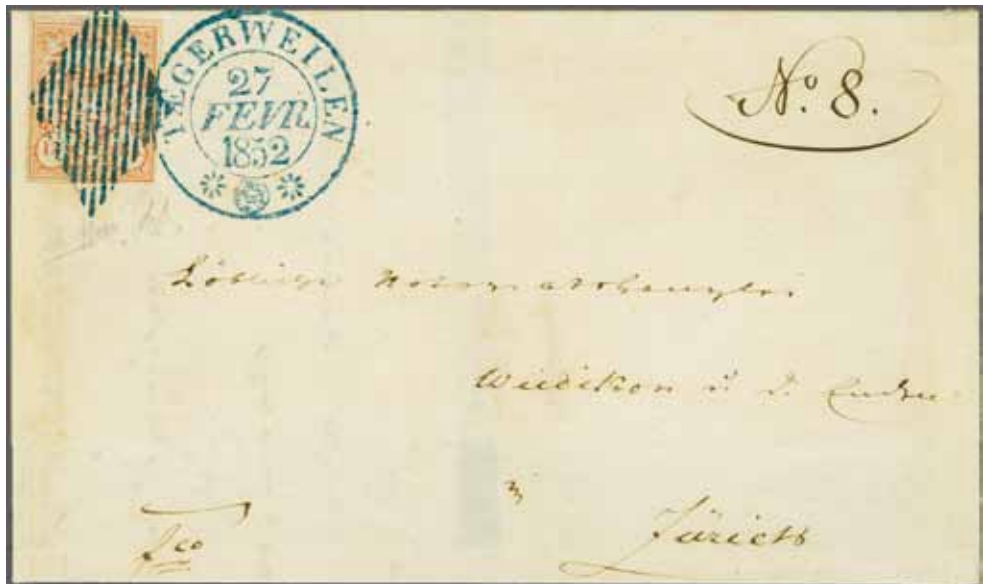 TÆGERWEILEN
27
FEVR.
1852
N° 8.
Löbliche Notariatskanzlei
Wiedikon
in
Zürich
fco